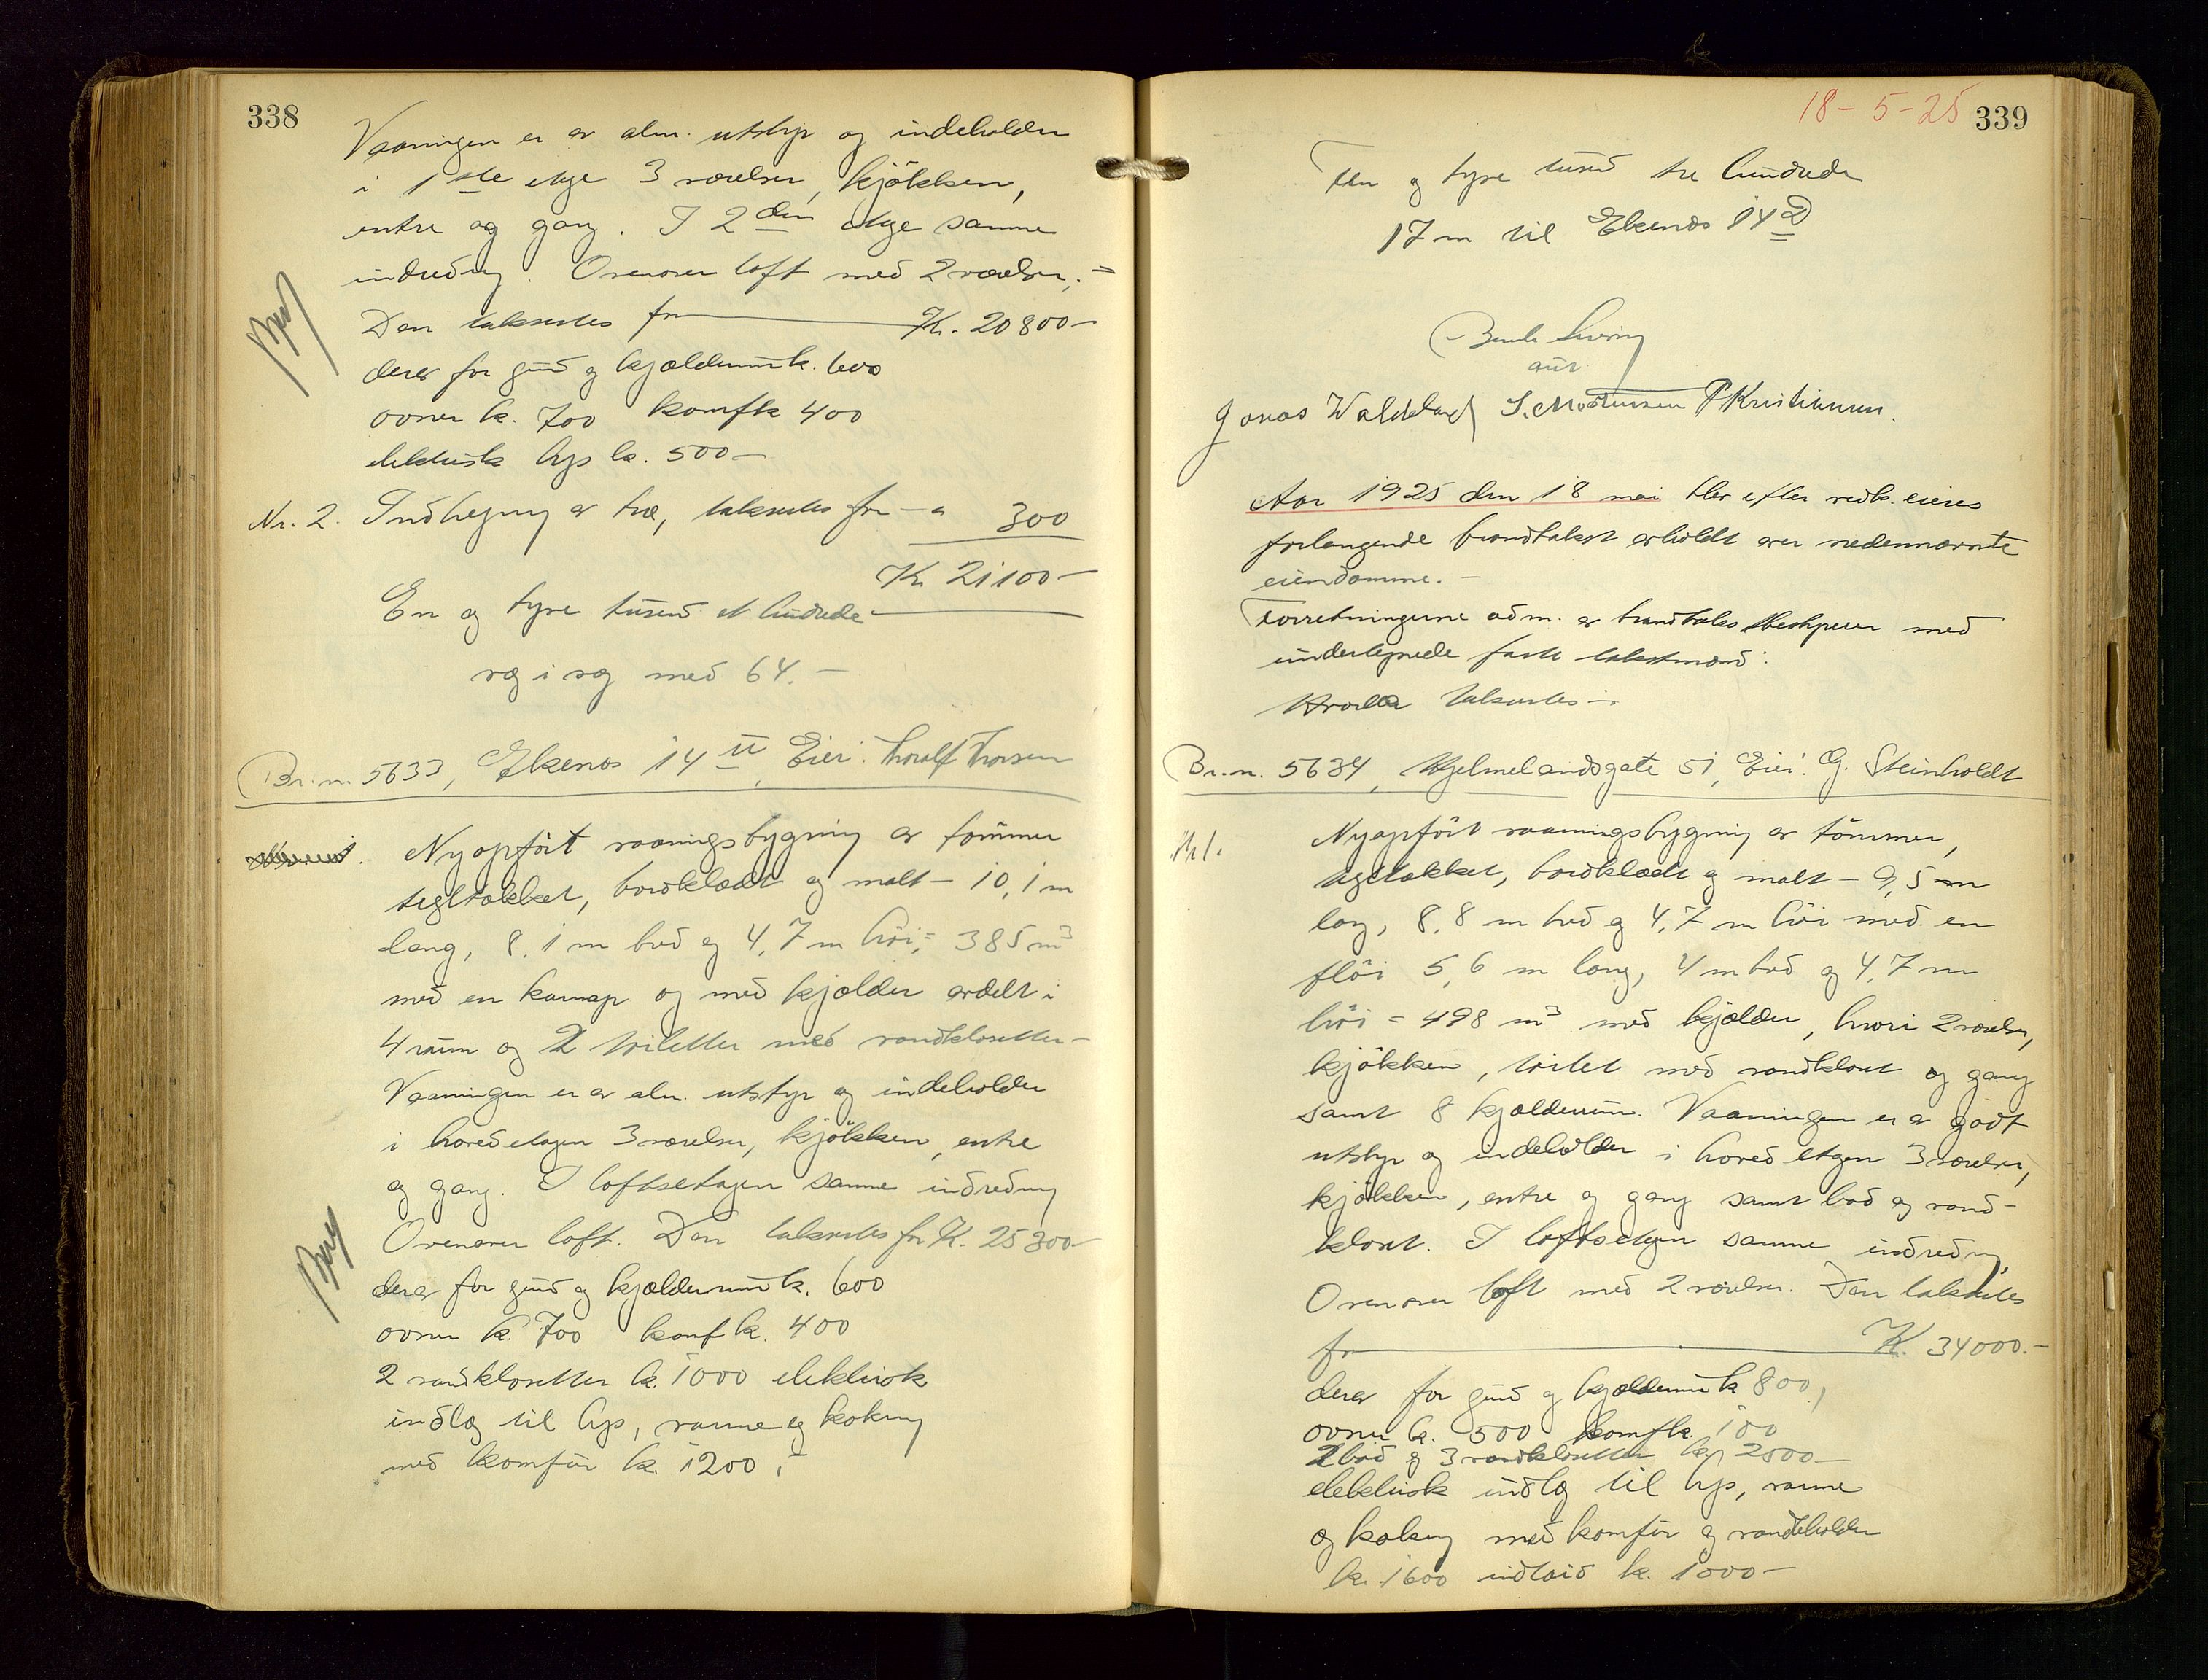 338
Vaaningen er av alm. utstyr og indeholder
i 1ste etage 3 værelser, kjökken,
entre og gang. I 2den etage samme
indredning. Ovenover loft med 2 værelser.-
Den takseres for Kr. 20800-
derav for grund og kjælderrum k. 600
ovner k. 700 komf k 400
elektrisk lys k. 500-
Nr. 2. Indhegning av træ, takseres for - " 300
Kr 21100-
En og tyve tusend et hundrede
væg i væg med 64.-
Br. nr. 5633, Ekenes 14 II, Eier: Thoralf Thorsen
Nyopfört vaaningsbygning av tömmer
tegltækket, bordklædt og malt - 10,1 m
lang, 8,1 m bred og 4,7 m höi = 385 m3
med en karnap og med kjælder avdelt i
4 rum og 2 toiletter med vandklosetter-
Vaaningen er av alm. utstyr og indeholder
i hovedetagen 3 værelser, kjökken, entre
og gang. I loftsetagen samme indredning
Ovenover loft. Den takseres for K. 25300-
derav for grund og kjælderrum k. 600
ovner k. 700 komf k. 400
2 vandklosetter k. 1000 elektrisk
indlæg til lys, varme og kokning
med komfür k. 1200.-
18-5-25 339
Fem og tyve tusend tre hundrede
17 m til Ekenes 14 D
Jonas Waldeland S. Mortensen P Kristiansen.
Aar 1925 den 18 mai blev efter vedk. eieres
forlangende brandtakst avholdt over nedennævnte
eiendomme.-
Forretningerne adm. av brandtakstbestyrer med
undertegnede faste takstmænd:
Hvorda takseres -
Br. nr. 5634, Hjelmelandsgate 51, Eier: G. Steinholdt
Nr 1. Nyopfört vaaningsbygning av tömmer,
tegltækket, bordklædt og malt - 9,5 m
lang, 8,8 m bred og 4,7 m höi med en
flöi 5,6 m lang, 4 m bred og 4,7 m
höi = 498 m3 med kjælder, hvori 2 værelser,
kjökken, toilet med vandkloset og gang
samt 8 kjælderrum. Vaaningen er av godt
utstyr og indeholder i hovedetagen 3 værelser,
kjökken, entre og gang samt bad og vand-
kloset. I loftsetagen samme indredning,
Ovenover loft med 2 værelser. Den takseres
for K. 34000.-
derav for grund og kjælderrum k 800,
ovner k. 500 komf k. 100
2 bad og 3 vandklosetter k. 2500-
elektrisk indlæg til lys, varme
og kokning med komfür og vandbeholder
k. 1600 indtaid k. 1000-